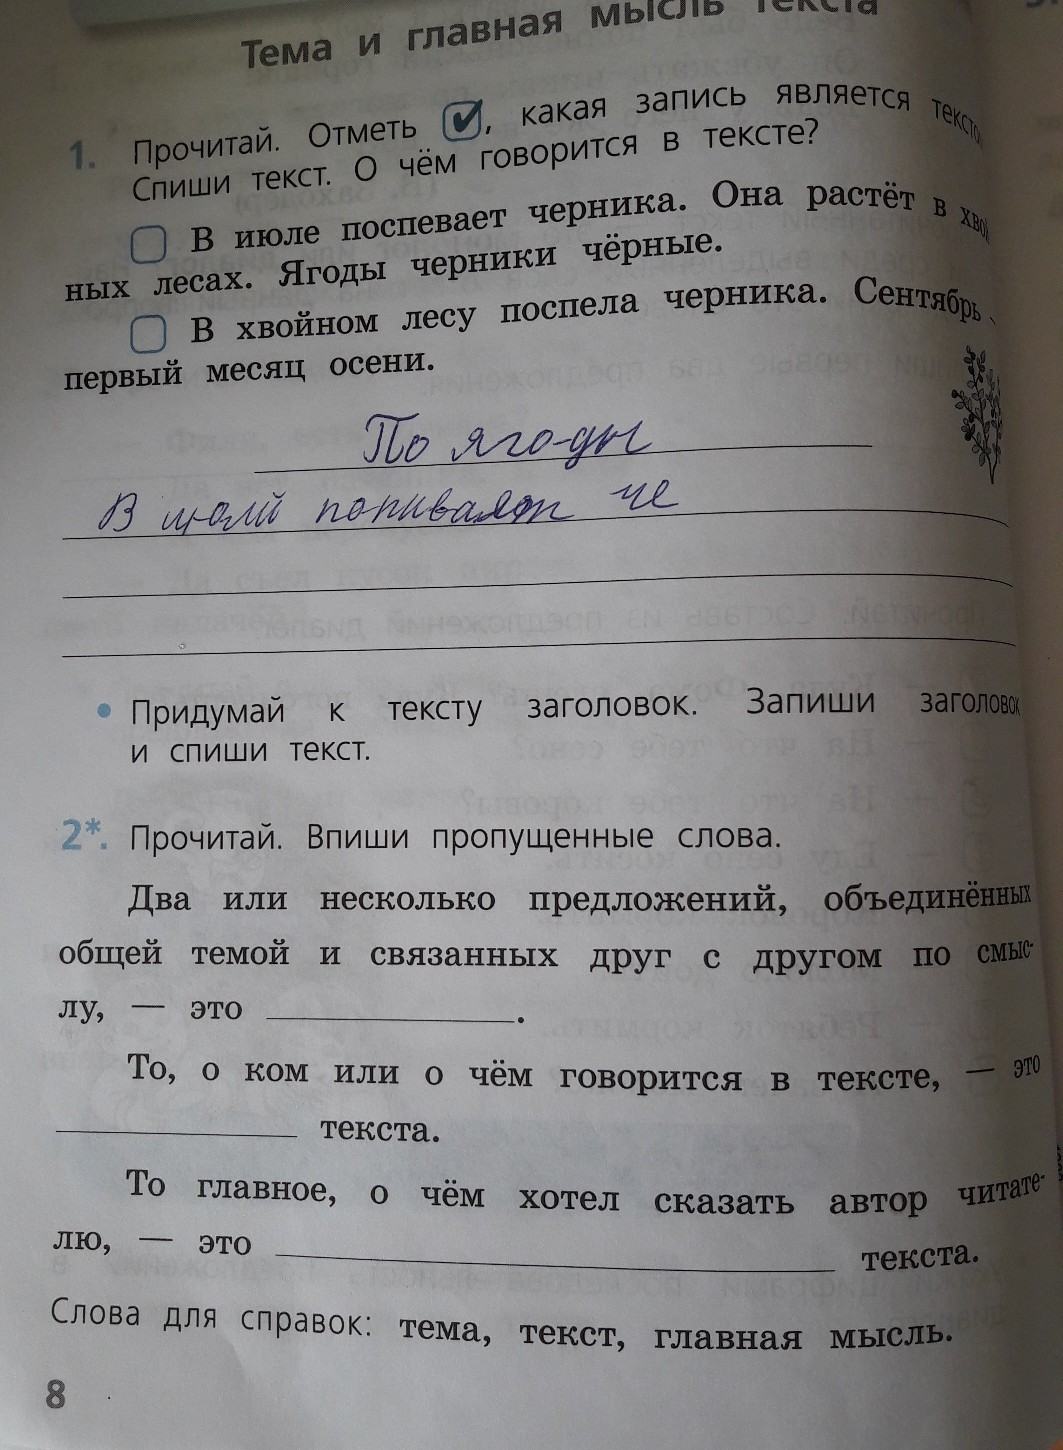 Тема и главная мысль текста
1. Прочитай. Отметь ✔, какая запись является тексто
Спиши текст. О чём говорится в тексте?
В июле поспевает черника. Она растёт в хвой
ных лесах. Ягоды черники чёрные.
В хвойном лесу поспела черника. Сентябрь -
первый месяц осени.
По ягоды
В июлй попивает че
• Придумай к тексту заголовок. Запиши заголовок
и спиши текст.
2*. Прочитай. Впиши пропущенные слова.
Два или несколько предложений, объединённых
общей темой и связанных друг с другом по смыс-
лу, — это ____.
То, о ком или о чём говорится в тексте, — это
____ текста.
То главное, о чём хотел сказать автор читате-
лю, — это ____ текста.
Слова для справок: тема, текст, главная мысль.
8